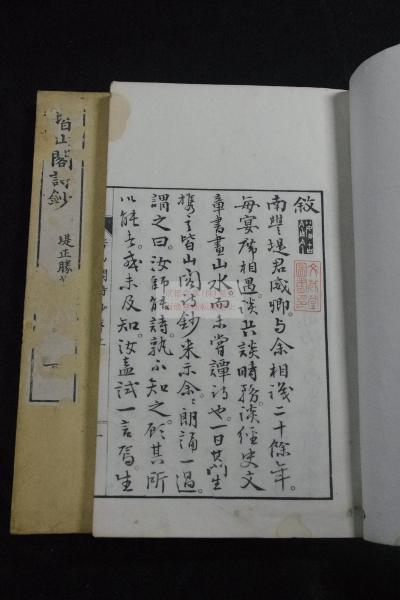 敘
南豐堤君威卿。与余相識二十餘年。
每宴席相遇。談共談時務。談經史文
章書畫山水。而未嘗譚詩也。一日其門生
携其皆山閣詩鈔来示余。余朗誦一過。
謂之曰。汝師能詩。孰不知之。顧其所
以能者。或未及知。汝盍試一言焉。生
皆山閣詩鈔
堤正勝